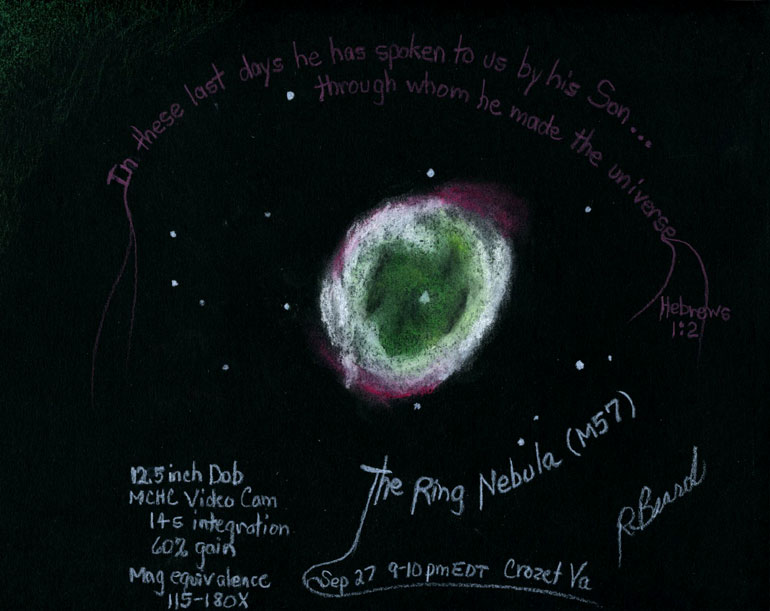 In these last days he has spoken to us by his Son...
through whom he made the universe
Hebrews
1:2
The Ring Nebula (M57)
12.5 inch Dob
MCHC Video Cam
14s integration
60% gain
Mag equivalence
115-180X
R Beard
Sep 27 9-10pm EDT Crozet Va